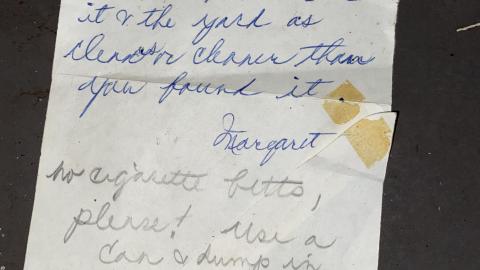 it & the yard as
clean as or cleaner than
you found it.
Margaret
no cigarette betts,
please! Use a
can & dump in